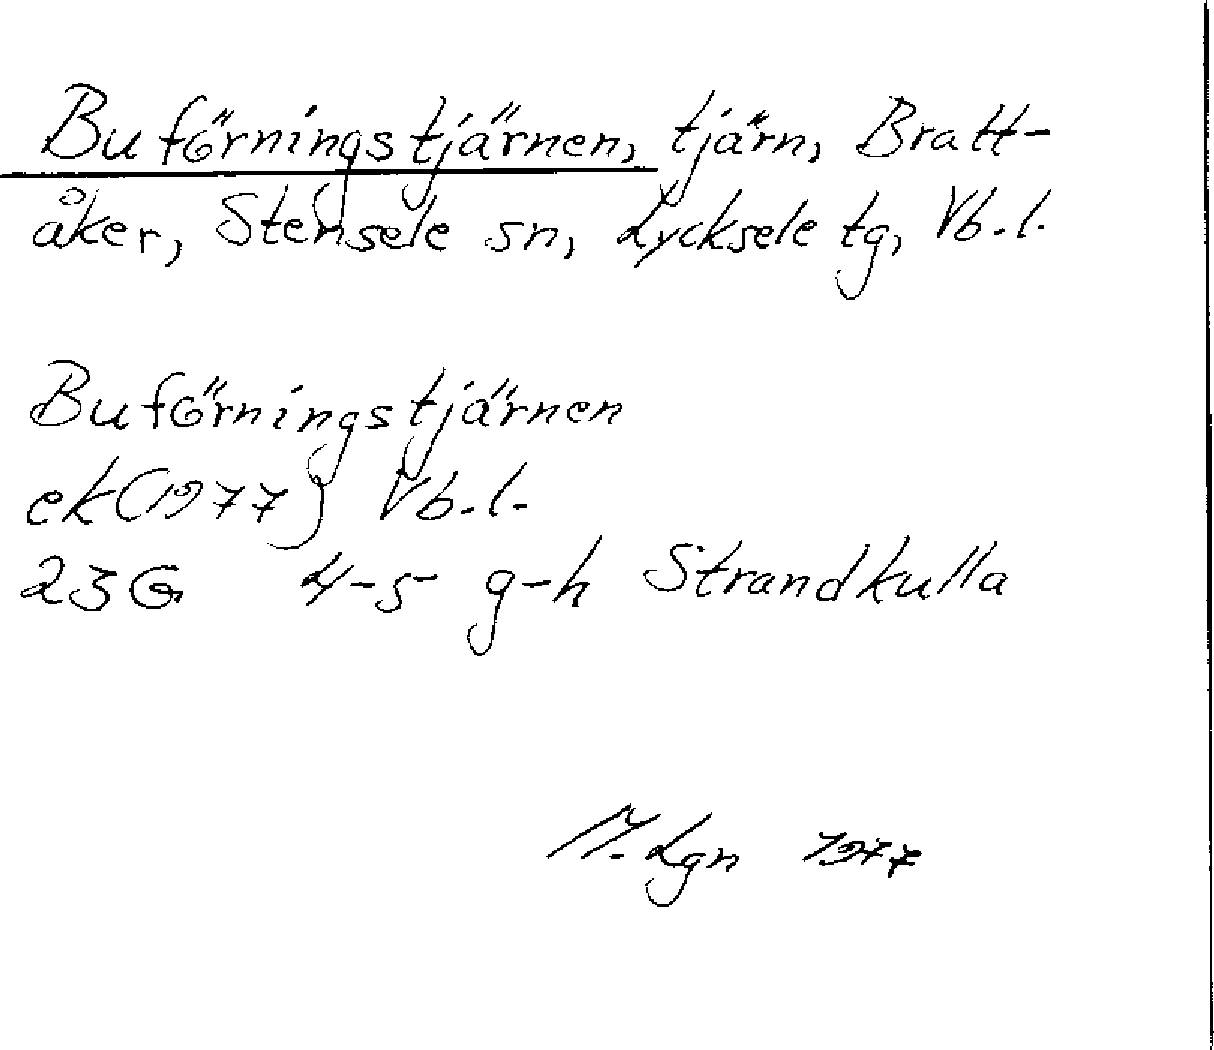 Buförningstjärnen, tjärn, Bratt-
åker, Stensele sn, Lycksele tg, Vb.l.
Buförningstjärnen
ek(1977) Vb.l.
23G 4-5 g-h Strandkulla
M. Lgn 1977